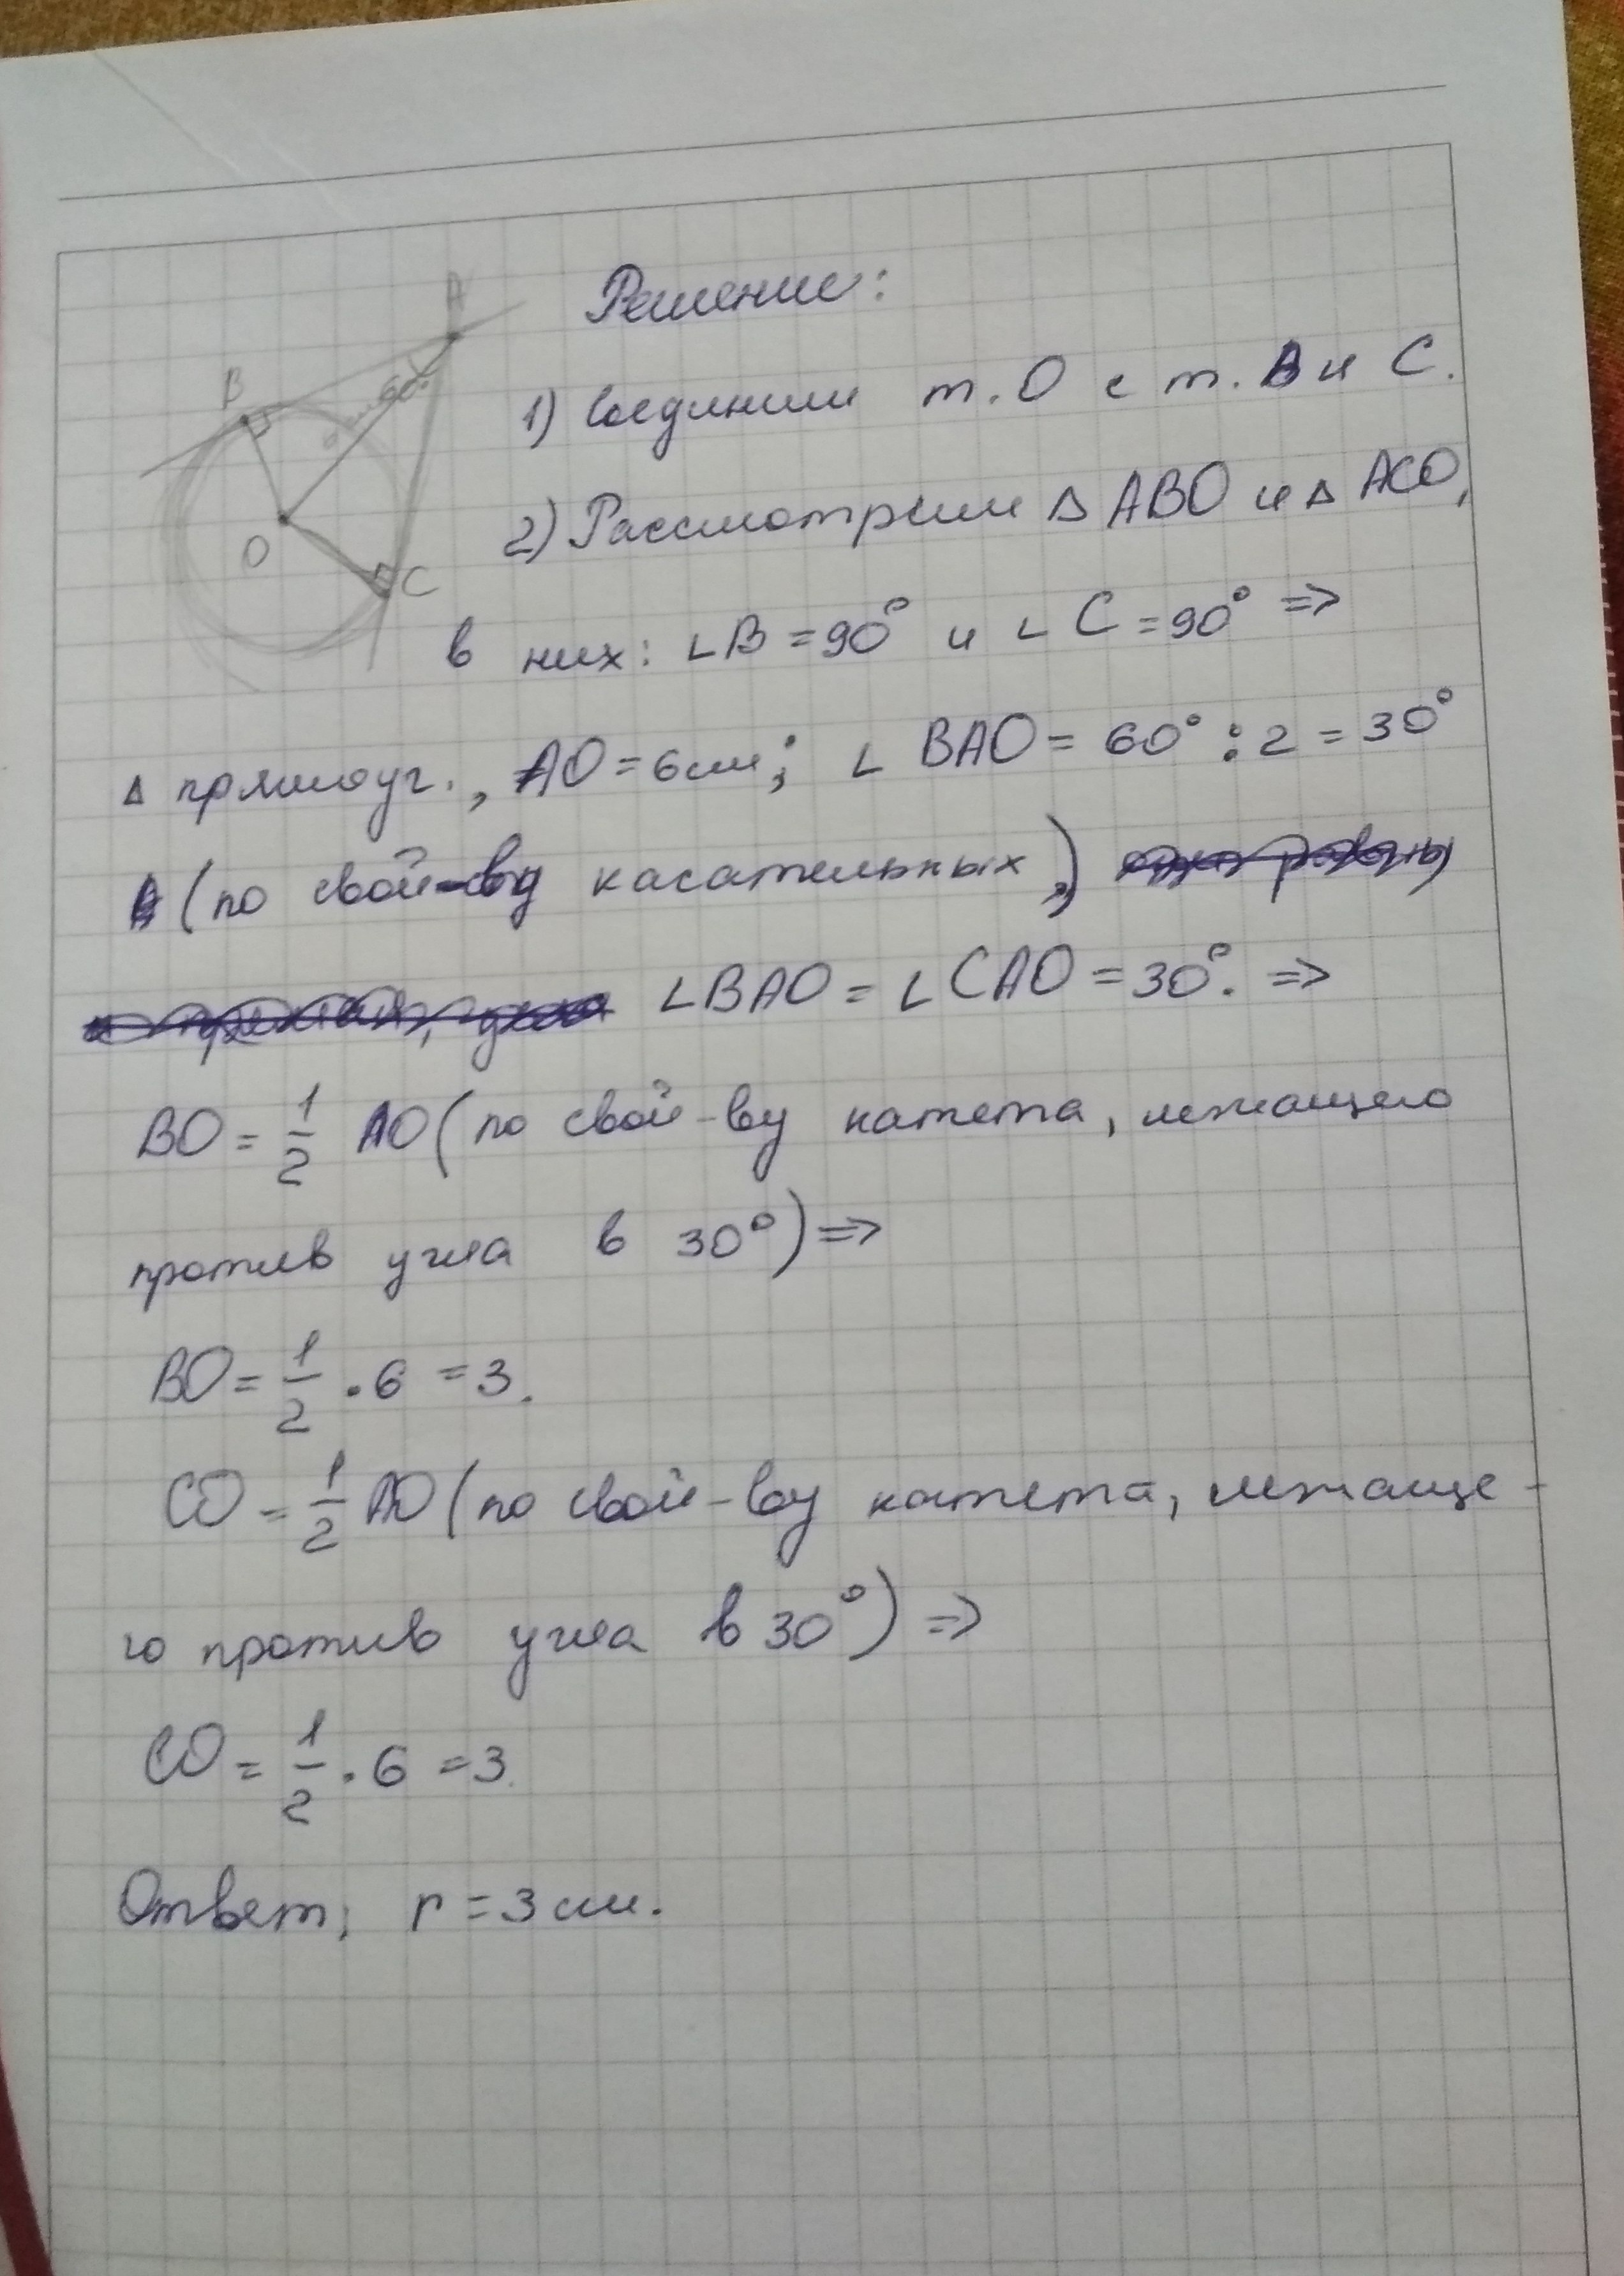 A
B
60°
6 см
O
C
Решение:
1) Соединим т. О с т. В и С.
2) Рассмотрим △ АВО и △ АСО,
в них: ∠B = 90° и ∠C = 90° ⇒
△ прямоуг., АО = 6 см; ∠ ВАО = 60° : 2 = 30°
(по свой-ву касательных),
∠ВАО = ∠САО = 30°. ⇒
ВО = 1/2 АО (по свой-ву катета, лежащего
против угла в 30°) ⇒
ВО = 1/2 · 6 = 3.
СО = 1/2 АО (по свой-ву катета, лежаще-
го против угла в 30°) ⇒
СО = 1/2 · 6 = 3.
Ответ: r = 3 см.